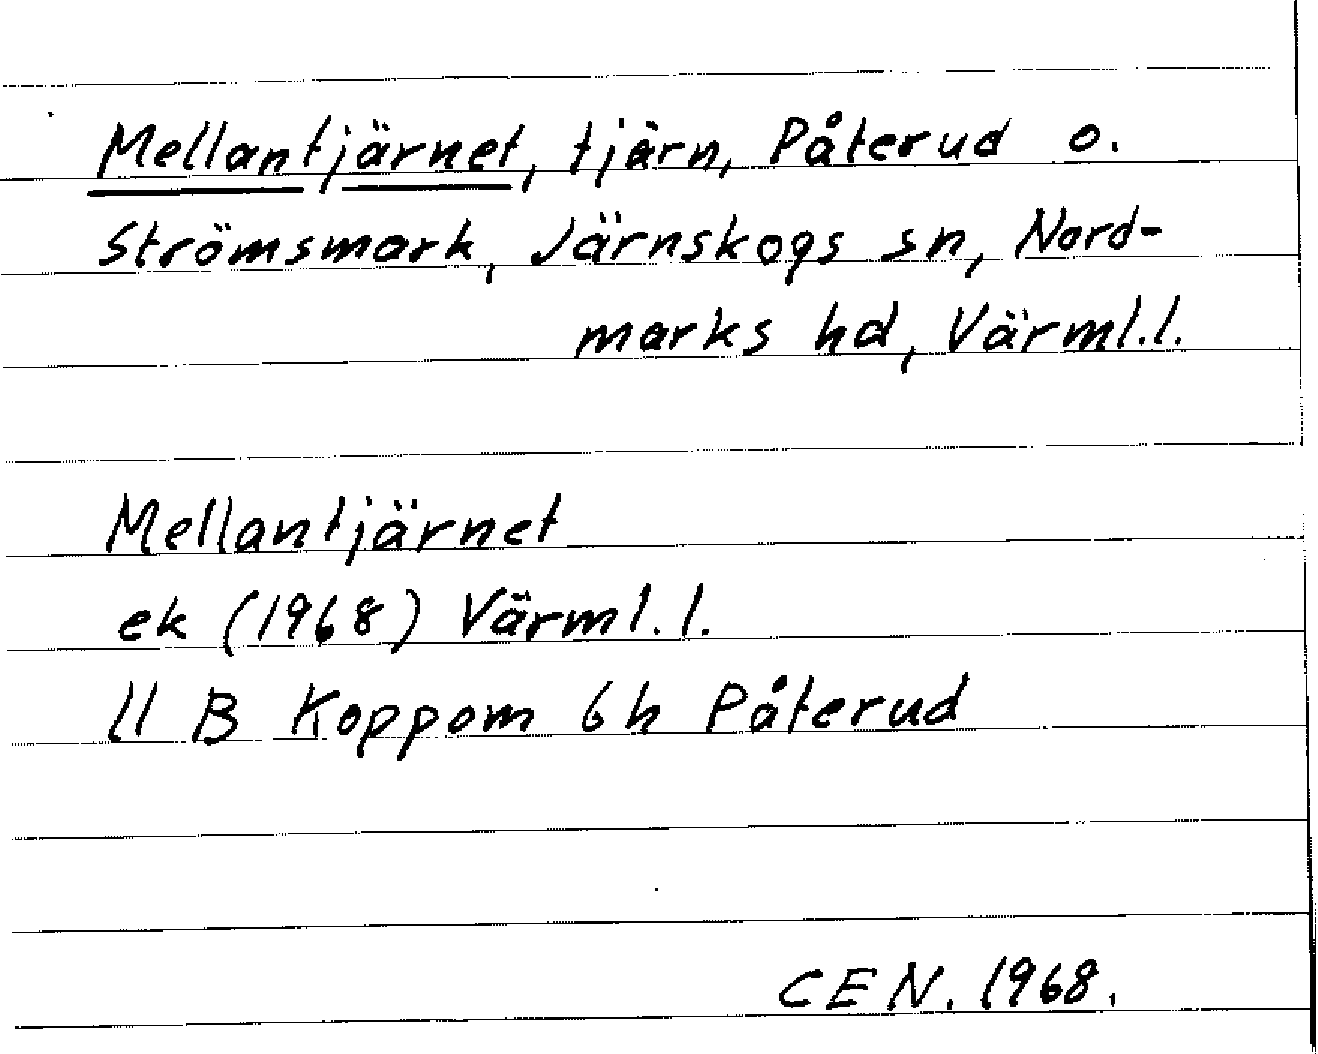 Mellantjärnet, tjärn, Påterud o.
Strömsmark, Järnskogs sn, Nord-
marks hd, Värml.l.
Mellantjärnet
ek (1968) Värml.l.
11 B Koppom 6h Påterud
CEN. 1968.